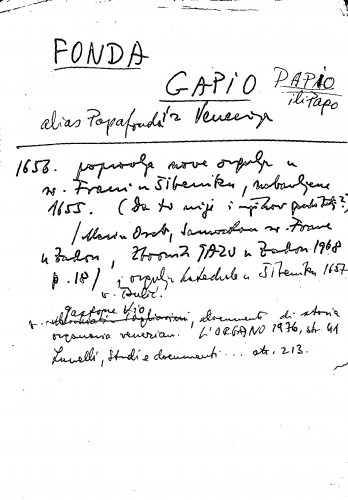 FONDA
GAPIO PAPIO
ili Papo
alias Papafonda iz Venecije
1656. popravlja nove orgulje u
sv. Frani u Šibeniku, nabavljene
1655. (Da to nije i njihov
/Marin Oreb, Samostan sv. Frane
u Zadru, Zbornik JAZU u Zadru 1968
p. 18/ i orgulje katedrale u Šibeniku 1657
v.
Gastone Vio
v. documenti di storia
organaria venezian. L'ORGANO 1976, str. 41
Lunelli, Studi e documenti... str. 213.